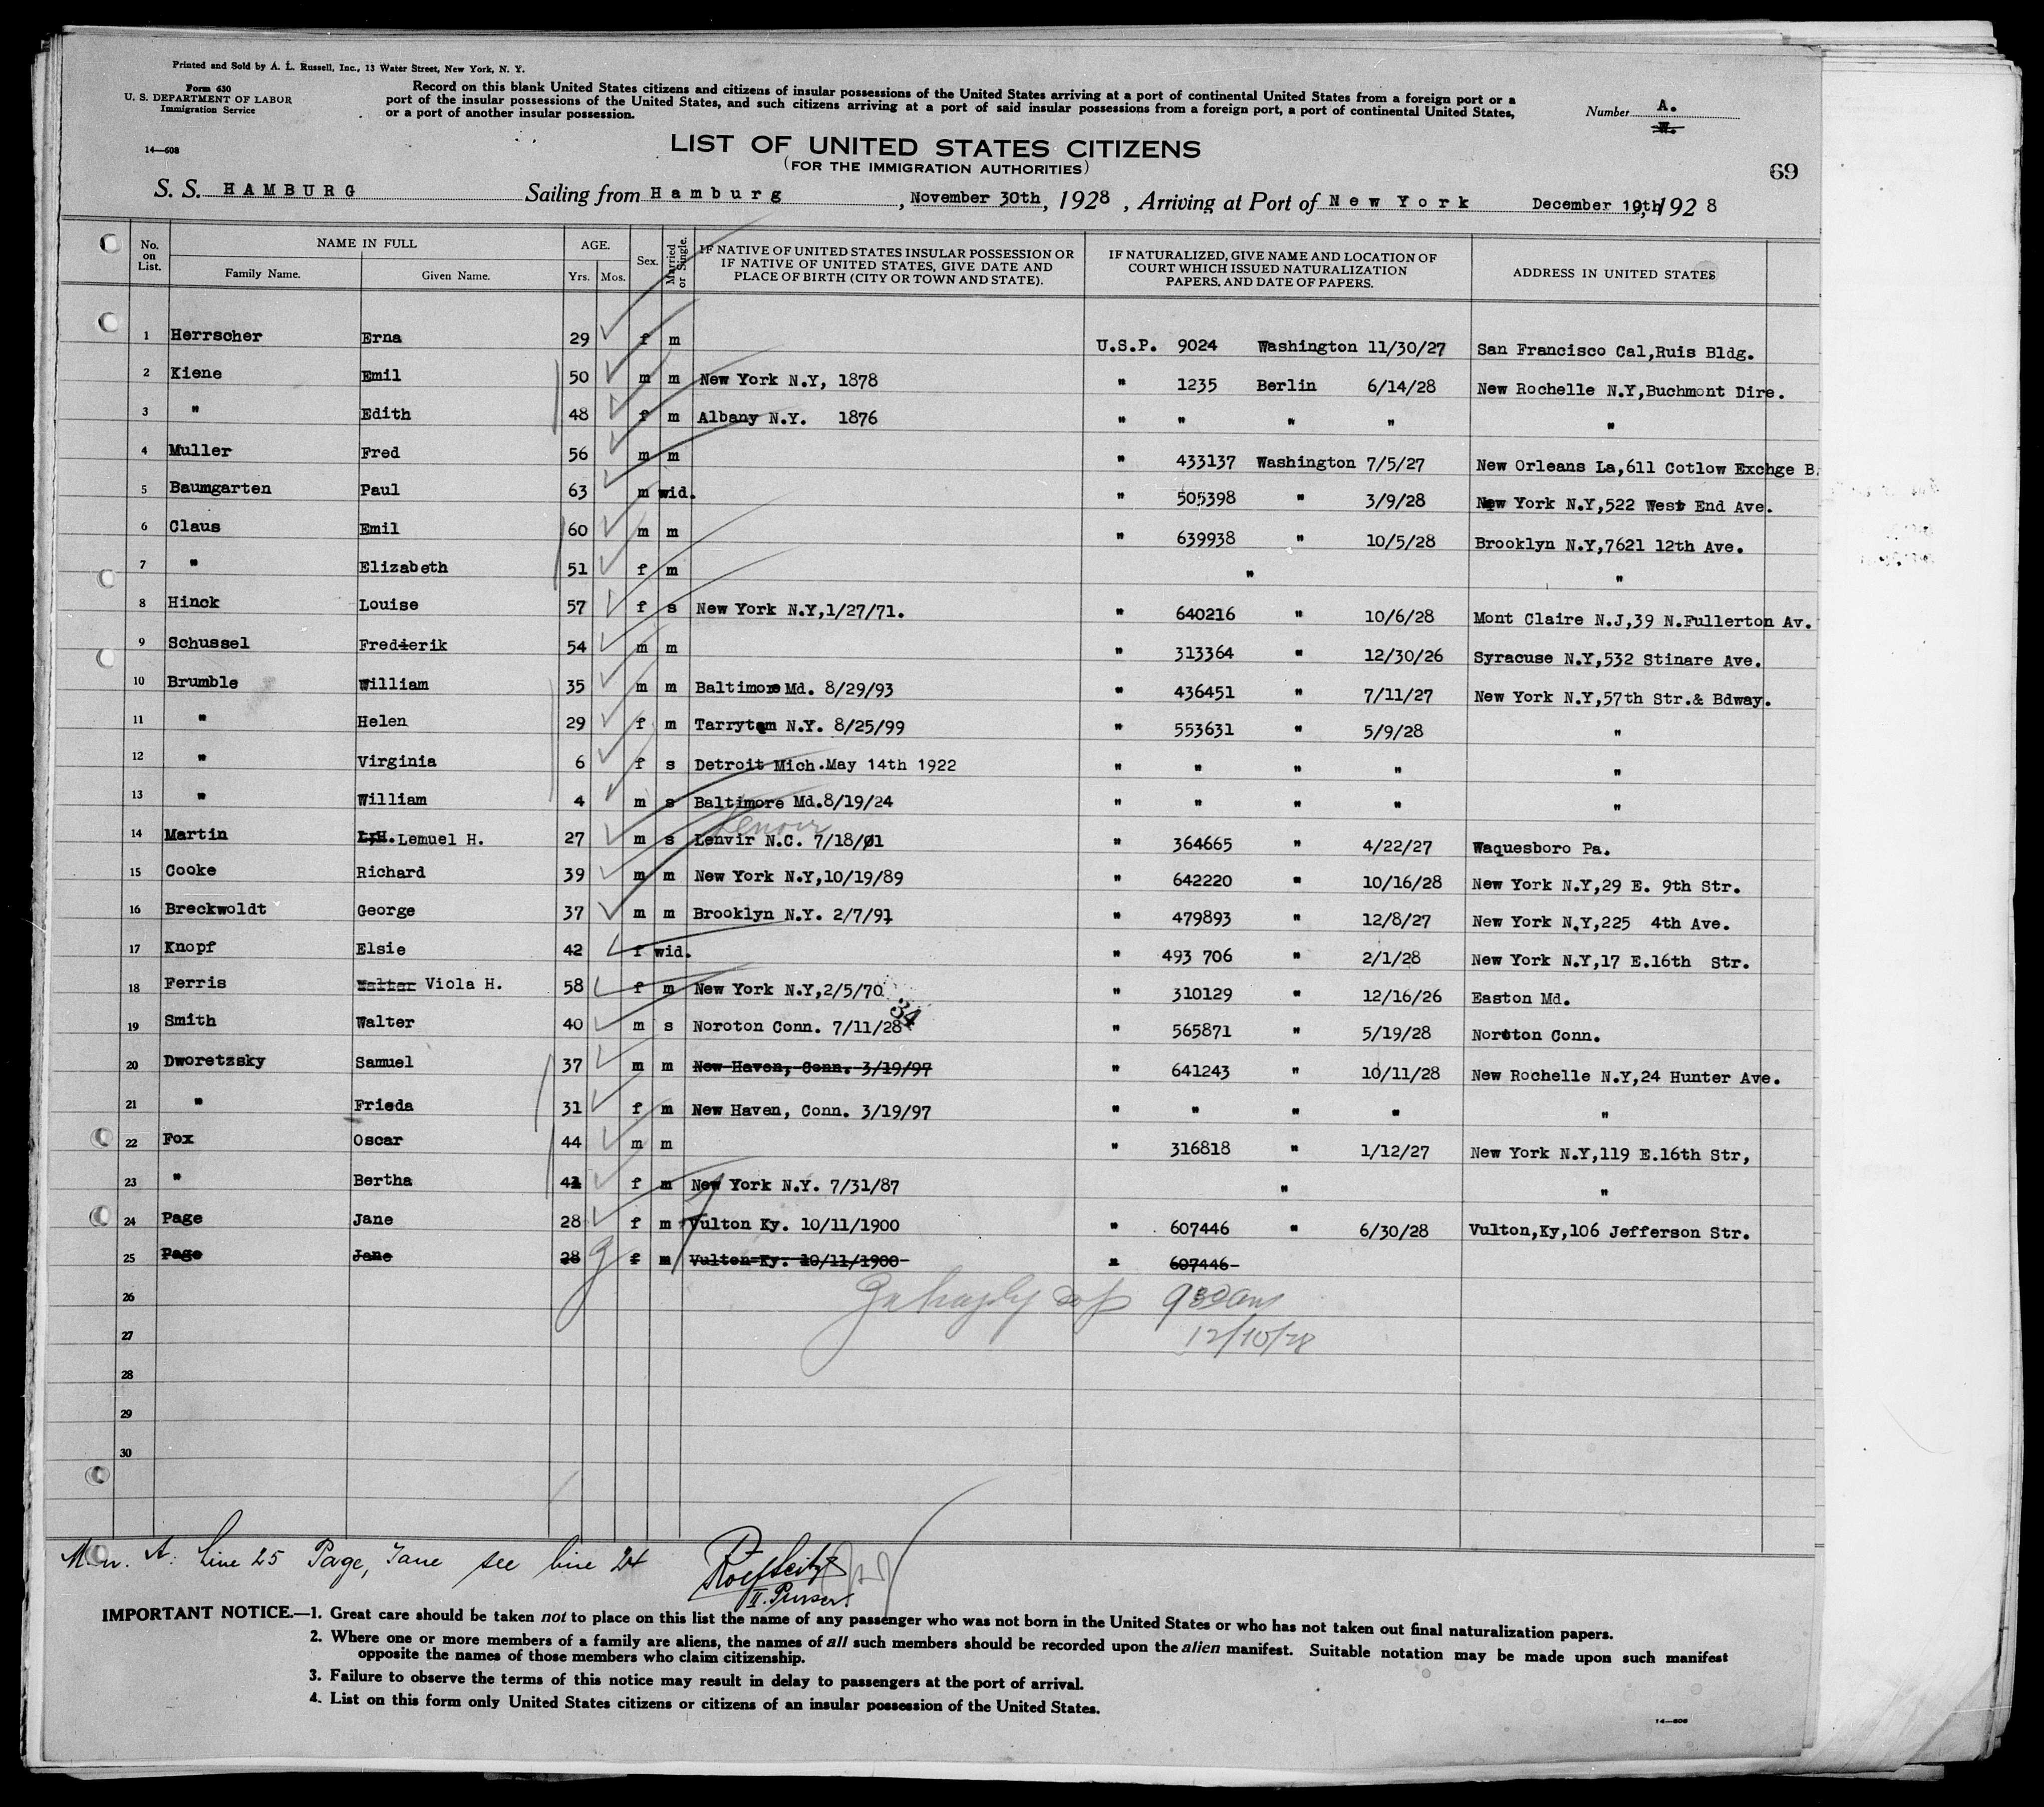 Printed and Sold by A. L. Russell, Inc., 13 Water Street, New York, N. Y.
Form 630
U. S. DEPARTMENT OF LABOR
Immigration Service
14—608
Record on this blank United States citizens and citizens of insular possessions of the United States arriving at a port of continental United States from a foreign port or a
port of the insular possessions of the United States, and such citizens arriving at a port of said insular possessions from a foreign port, a port of continental United States,
or a port of another insular possession.
Number A.
69
LIST OF UNITED STATES CITIZENS
(FOR THE IMMIGRATION AUTHORITIES)
S. S. HAMBURG Sailing from Hamburg, November 30th, 1928, Arriving at Port of New York December 10th, 1928
No. on List. NAME IN FULL Family Name. Given Name. AGE. Yrs. Mos. Sex. Married or Single. IF NATIVE OF UNITED STATES INSULAR POSSESSION OR IF NATIVE OF UNITED STATES, GIVE DATE AND PLACE OF BIRTH (CITY OR TOWN AND STATE). IF NATURALIZED, GIVE NAME AND LOCATION OF COURT WHICH ISSUED NATURALIZATION PAPERS, AND DATE OF PAPERS. ADDRESS IN UNITED STATES
1 Herrscher Erna 29 f m U.S.P. 9024 Washington 11/30/27 San Francisco Cal,Ruis Bldg.
2 Kiene Emil 50 m m New York N.Y, 1878 " 1235 Berlin 6/14/28 New Rochelle N.Y,Buchmont Dire.
3 " Edith 48 f m Albany N.Y. 1876 " " " " "
4 Muller Fred 56 m m " 433137 Washington 7/5/27 New Orleans La,611 Cotlow Exchge B.
5 Baumgarten Paul 63 m wid. " 505398 " 3/9/28 New York N.Y,522 West End Ave.
6 Claus Emil 60 m m " 639938 " 10/5/28 Brooklyn N.Y,7621 12th Ave.
7 " Elizabeth 51 f m " "
8 Hinck Louise 57 f s New York N.Y,1/27/71. " 640216 " 10/6/28 Mont Claire N.J,39 N.Fullerton Av.
9 Schussel Fredierik 54 m m " 313364 " 12/30/26 Syracuse N.Y,532 Stinare Ave.
10 Brumble William 35 m m Baltimore Md. 8/29/93 " 436451 " 7/11/27 New York N.Y,57th Str.& Bdway.
11 " Helen 29 f m Tarrytøm N.Y. 8/25/99 " 553631 " 5/9/28 "
12 " Virginia 6 f s Detroit Mich.May 14th 1922 " " " " "
13 " William 4 m s Baltimore Md.8/19/24 " " " " "
Lenoir
14 Martin L.H. Lemuel H. 27 m s Lenvir N.C. 7/18/01 " 364665 " 4/22/27 Waquesboro Pa.
15 Cooke Richard 39 m m New York N.Y,10/19/89 " 642220 " 10/16/28 New York N.Y,29 E. 9th Str.
16 Breckwoldt George 37 m m Brooklyn N.Y. 2/7/91 " 479893 " 12/8/27 New York N.Y,225 4th Ave.
17 Knopf Elsie 42 f wid. " 493 706 " 2/1/28 New York N.Y,17 E.16th Str.
18 Ferris Walter Viola H. 58 f m New York N.Y,2/5/70 " 310129 " 12/16/26 Easton Md.
34
19 Smith Walter 40 m s Noroton Conn. 7/11/28 " 565871 " 5/19/28 Noroton Conn.
20 Dworetzsky Samuel 37 m m New Haven, Conn. 3/19/97 " 641243 " 10/11/28 New Rochelle N.Y,24 Hunter Ave.
21 " Frieda 31 f m New Haven, Conn. 3/19/97 " " " " "
22 Fox Oscar 44 m m " 316818 " 1/12/27 New York N.Y,119 E.16th Str,
23 " Bertha 41 f m New York N.Y. 7/31/87 " "
24 Page Jane 28 f m Vulton Ky. 10/11/1900 " 607446 " 6/30/28 Vulton,Ky,106 Jefferson Str.
25 Page Jane 28 f m Vulton Ky. 10/11/1900 " 607446
26 930am
27 12/10/28
28
29
30
M. n. A: Line 25 Page, Jane see line 24
II. Purser.
IMPORTANT NOTICE.—1. Great care should be taken not to place on this list the name of any passenger who was not born in the United States or who has not taken out final naturalization papers.
2. Where one or more members of a family are aliens, the names of all such members should be recorded upon the alien manifest. Suitable notation may be made upon such manifest
opposite the names of those members who claim citizenship.
3. Failure to observe the terms of this notice may result in delay to passengers at the port of arrival.
4. List on this form only United States citizens or citizens of an insular possession of the United States.
14—608